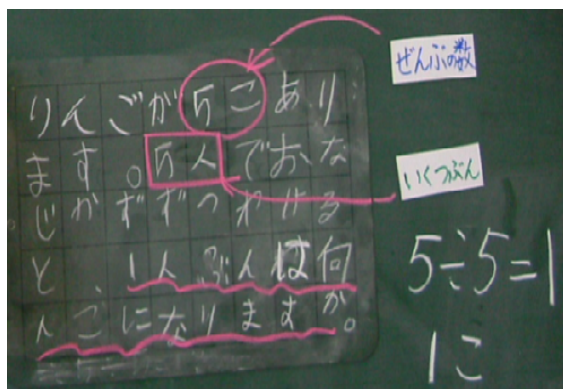 りんごが5こあり
ます。5人でおな
じかずずつわける
と、1人ぶんは何
んこになりますか。
ぜんぶの数
いくつぶん
5÷5=1
1こ